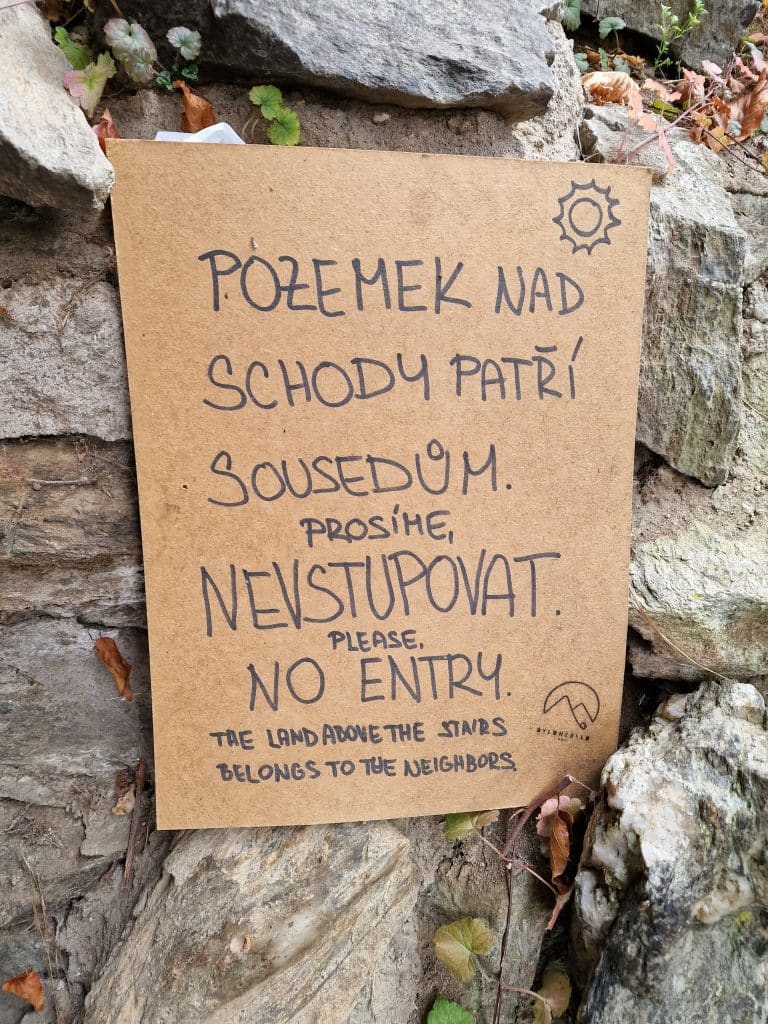 POZEMEK NAD
SCHODY PATŘÍ
SOUSEDŮM.
PROSÍME,
NEVSTUPOVAT.
PLEASE,
NO ENTRY.
THE LAND ABOVE THE STAIRS
BELONGS TO THE NEIGHBORS.